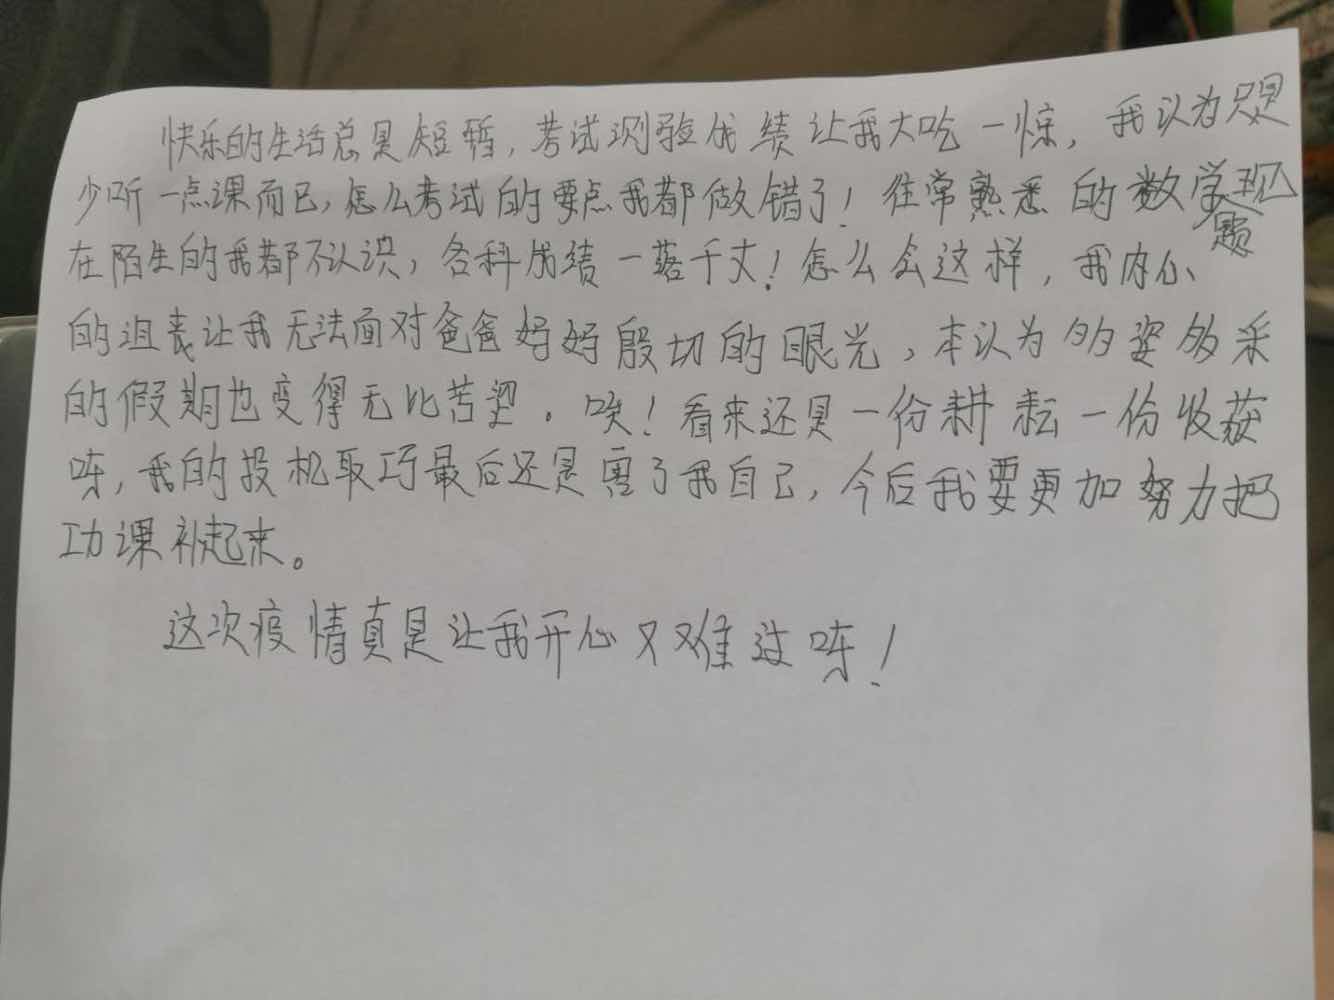 快乐的生活总是短暂，考试测验成绩让我大吃一惊，我认为只是
少听一点课而已，怎么考试的要点我都做错了！往常熟悉的数学题现
在陌生的我都不认识，各科成绩一落千丈！怎么会这样，我内心
的沮丧让我无法面对爸爸妈妈殷切的眼光，本认为多姿多采
的假期也变得无比苦望。唉！看来还是一份耕耘一份收获
呀，我的投机取巧最后还是害了我自己，今后我要更加努力把
功课补起来。
这次疫情真是让我开心又难过呀！